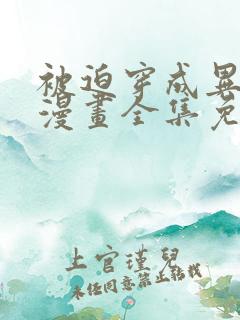 被迫穿成異
漫畫全集免
上官瑾兒
未经同意禁止转载